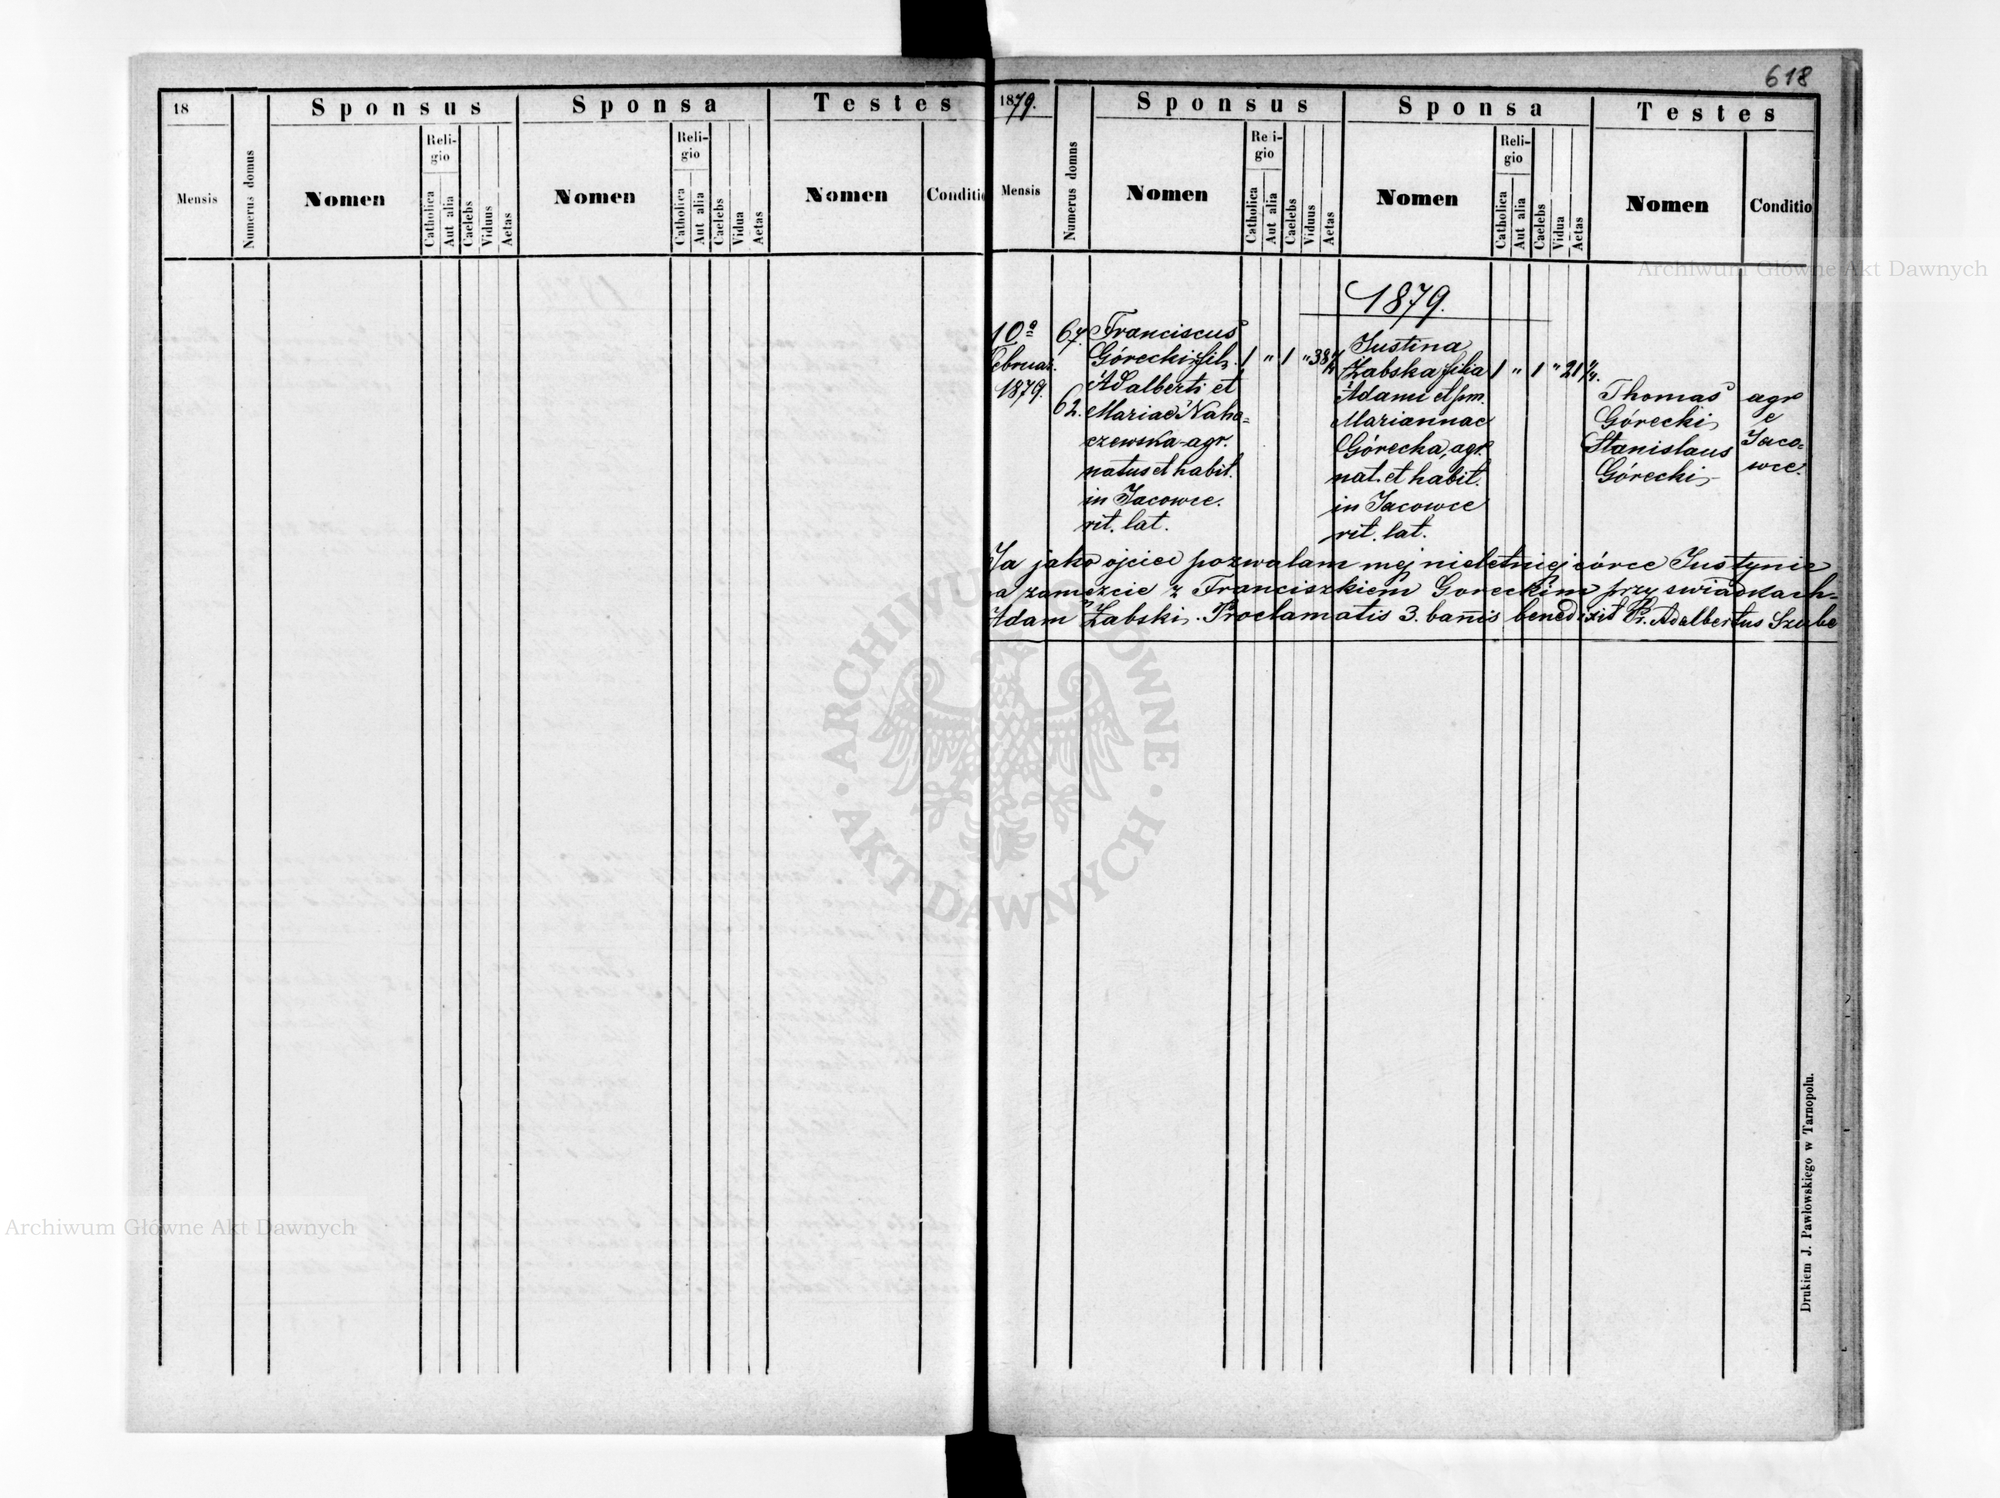 618
18
Sponsus
Sponsa
Testes
Mensis
Numerus domus
Nomen
Religio
Catholica
Aut alia
Caelebs
Viduus
Aetas
Nomen
Religio
Catholica
Aut alia
Caelebs
Vidua
Aetas
Nomen
Conditio
1879.
Sponsus
Sponsa
Testes
Mensis
Numerus domus
Nomen
Religio
Catholica
Aut alia
Caelebs
Viduus
Aetas
Nomen
Religio
Catholica
Aut alia
Caelebs
Vidua
Aetas
Nomen
Conditio
1879.
10a
Februar.
1879.
67.
62.
Franciscus
Górecki, fil.
Adalberti et
Mariae Naha=
czewska agr.
natus et habit.
in Jacowce.
rit. lat.
1 " 1 " 38
Justina
Żabska filia
Adami et
Mariannae
Górecka, agr.
nat. et habit.
in Jacowce
rit. lat.
1 " 1 " 21
Thomas
Górecki,
Stanislaus
Górecki,
agr
e
Jaco-
wce.
Ja jako ojciec pozwalam mej nieletniej córce Justynie
a zamęzcie z Franciszkiem Goreckim przy swiadkach=
Adam Żabski. Proclamatis 3. banis benedixit Pr. Adalbertus Szube
Drukiem J. Pawłowskiego w Tarnopolu.
Archiwum Główne Akt Dawnych
Archiwum Główne Akt Dawnych
ARCHIWUM GŁÓWNE · AKT DAWNYCH ·